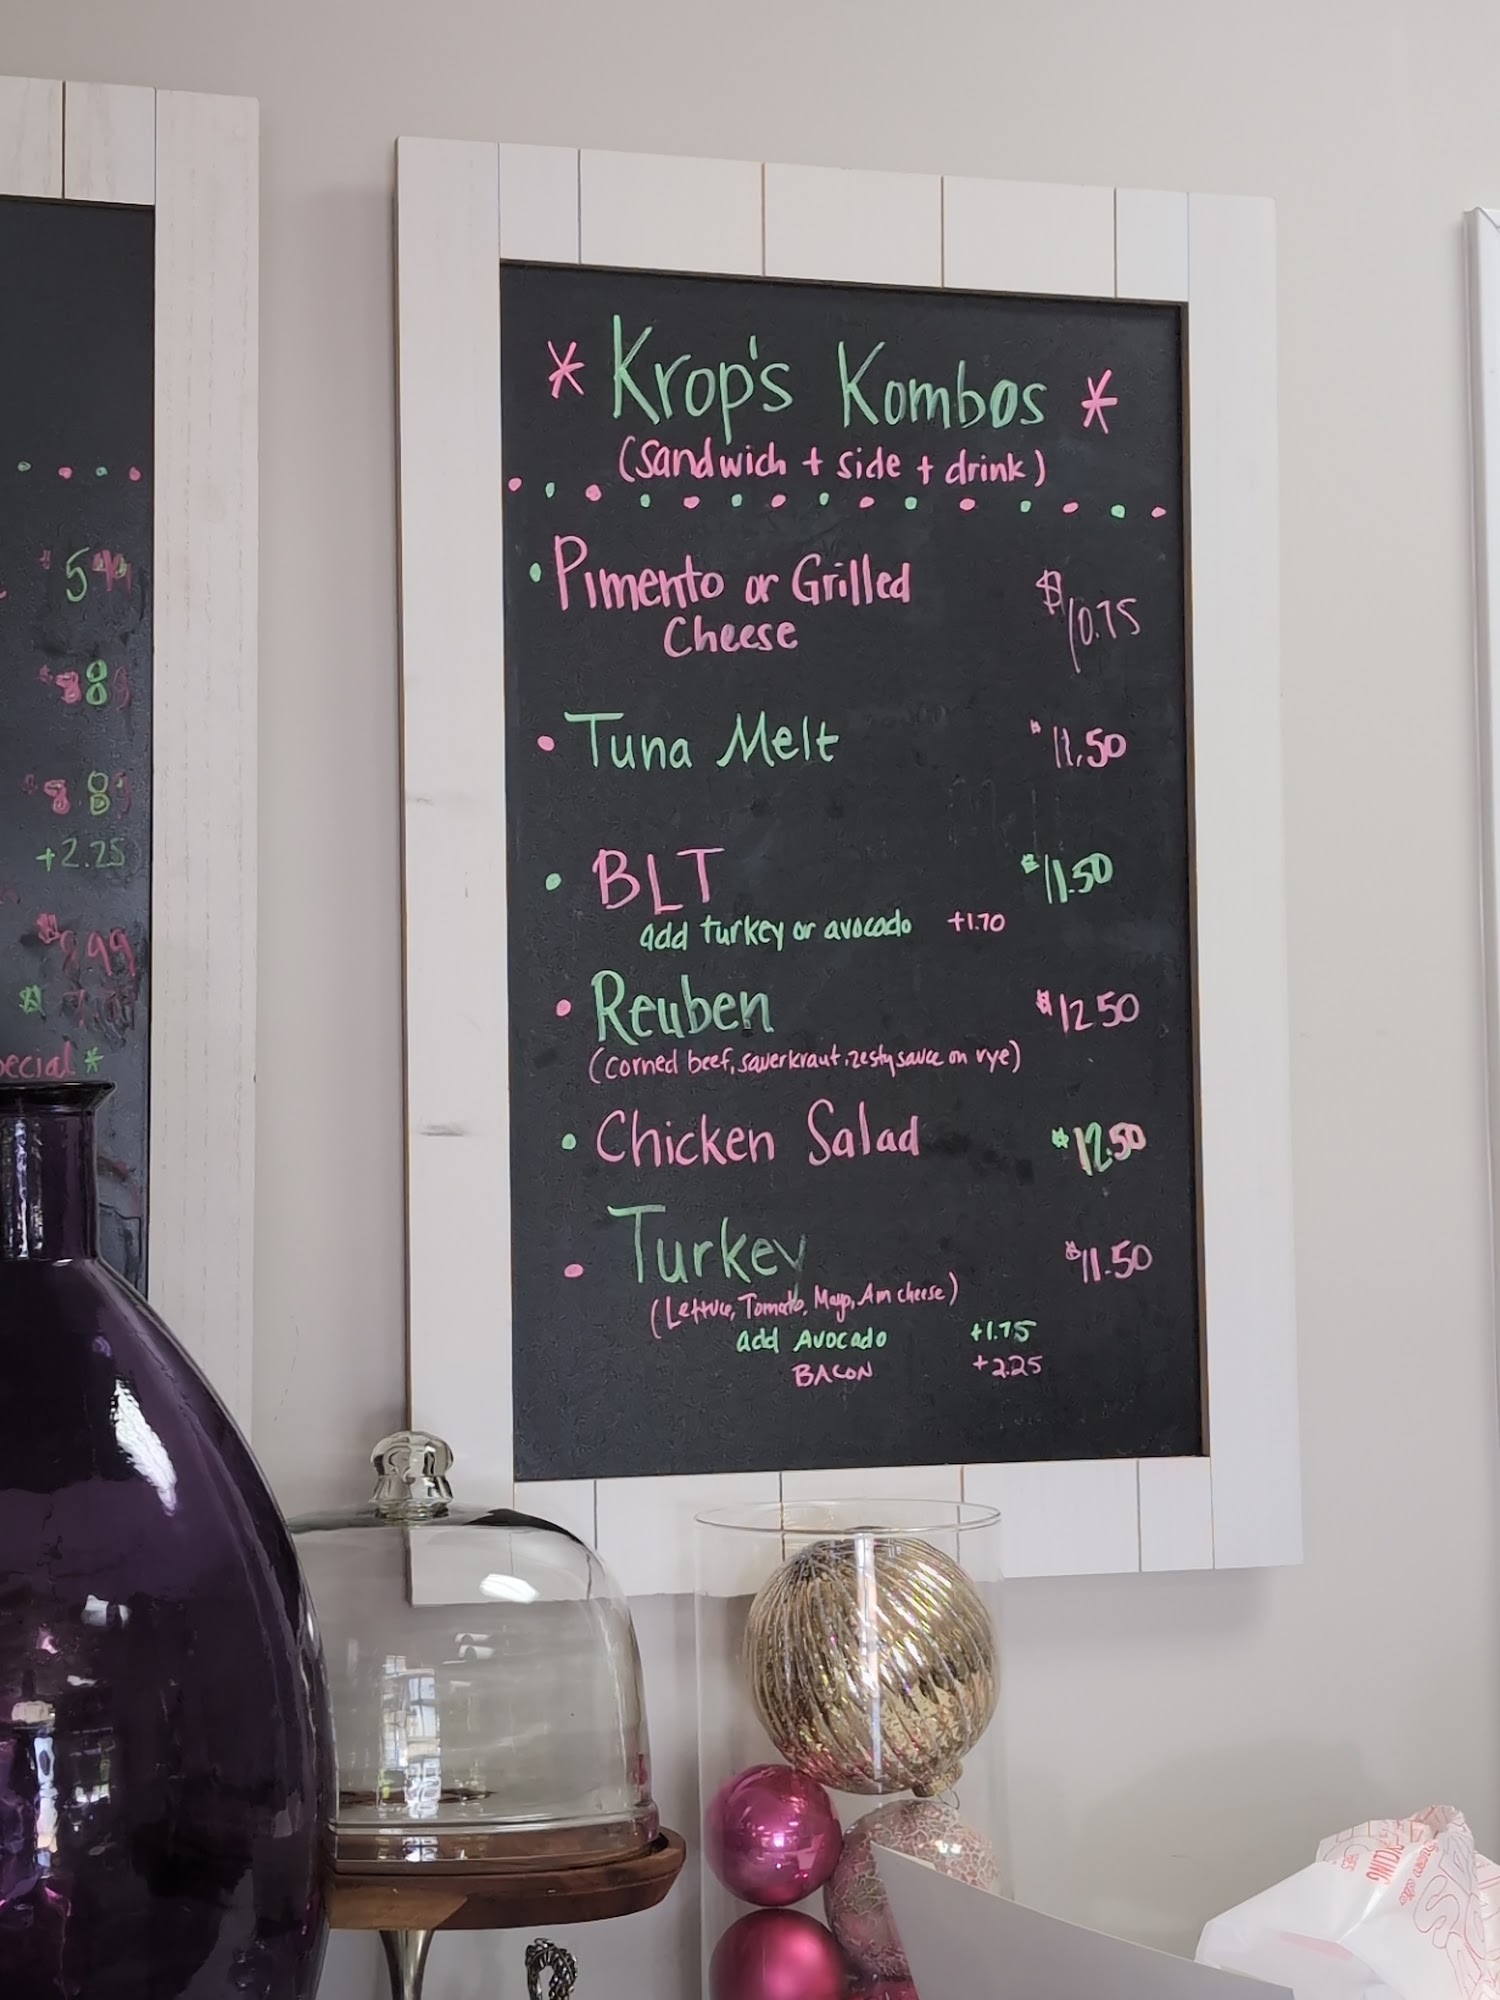 * Krop's Kombos *
(sandwich + side + drink)
• Pimento or Grilled $10.75
Cheese
• Tuna Melt $11.50
• BLT $11.50
add turkey or avocado +1.70
• Reuben $12.50
(corned beef, sauerkraut, zesty sauce on rye)
• Chicken Salad $12.50
• Turkey $11.50
(Lettuce, Tomato, Mayo, Am cheese)
add Avocado +1.75
BACON +2.25
$5.49
$8.89
$8.89
+2.25